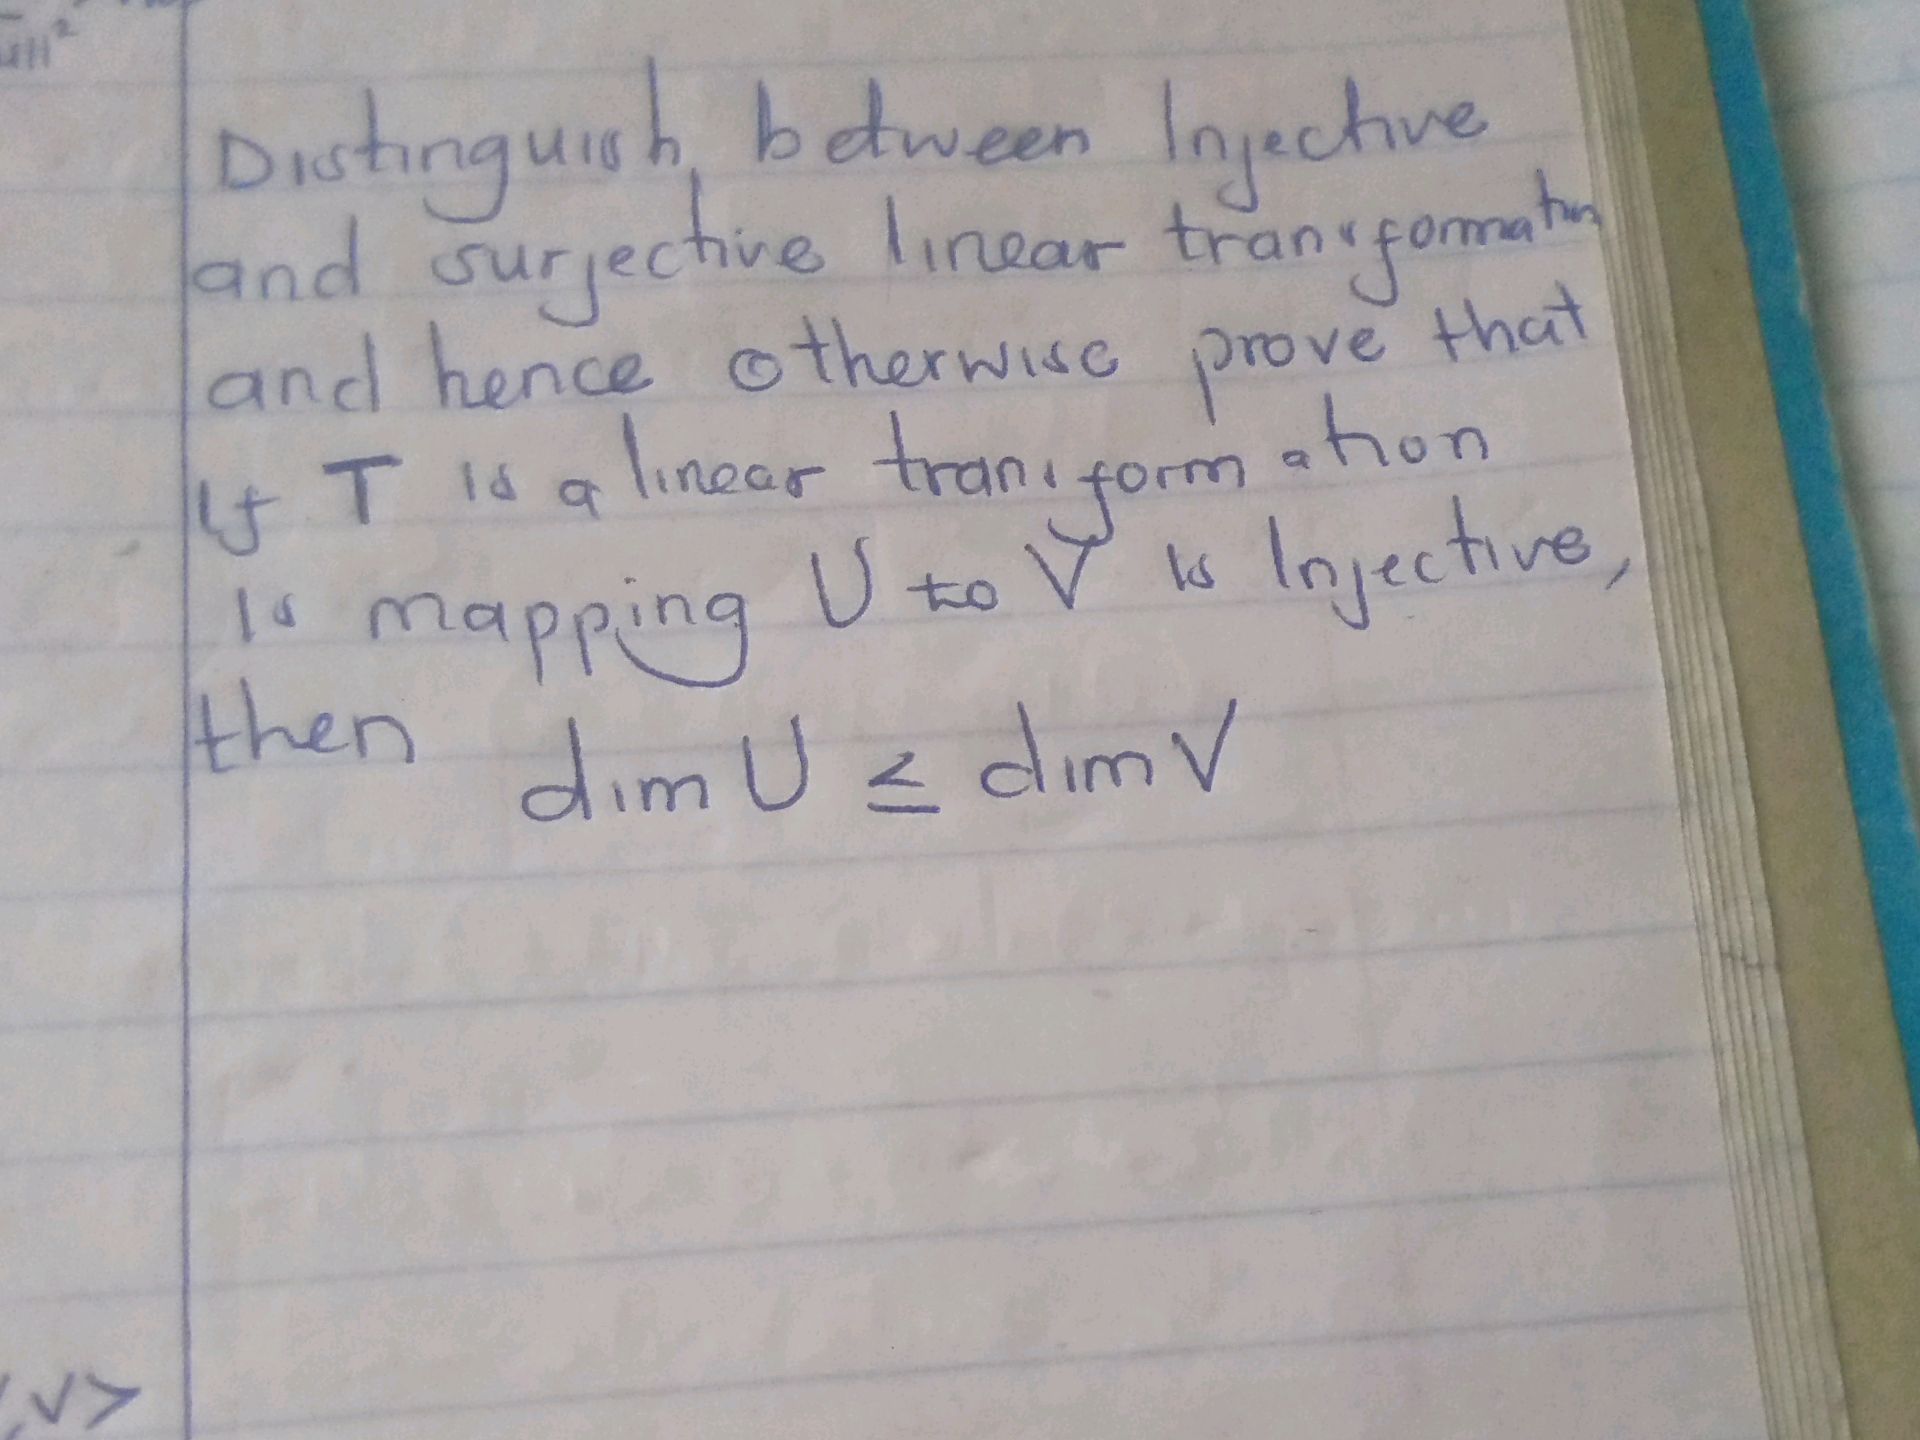 Distinguish between Injective
and surjective linear transformation
and hence otherwise prove that
If T is a linear transformation
is mapping U to V is Injective,
then dim U ≤ dim V
,v>